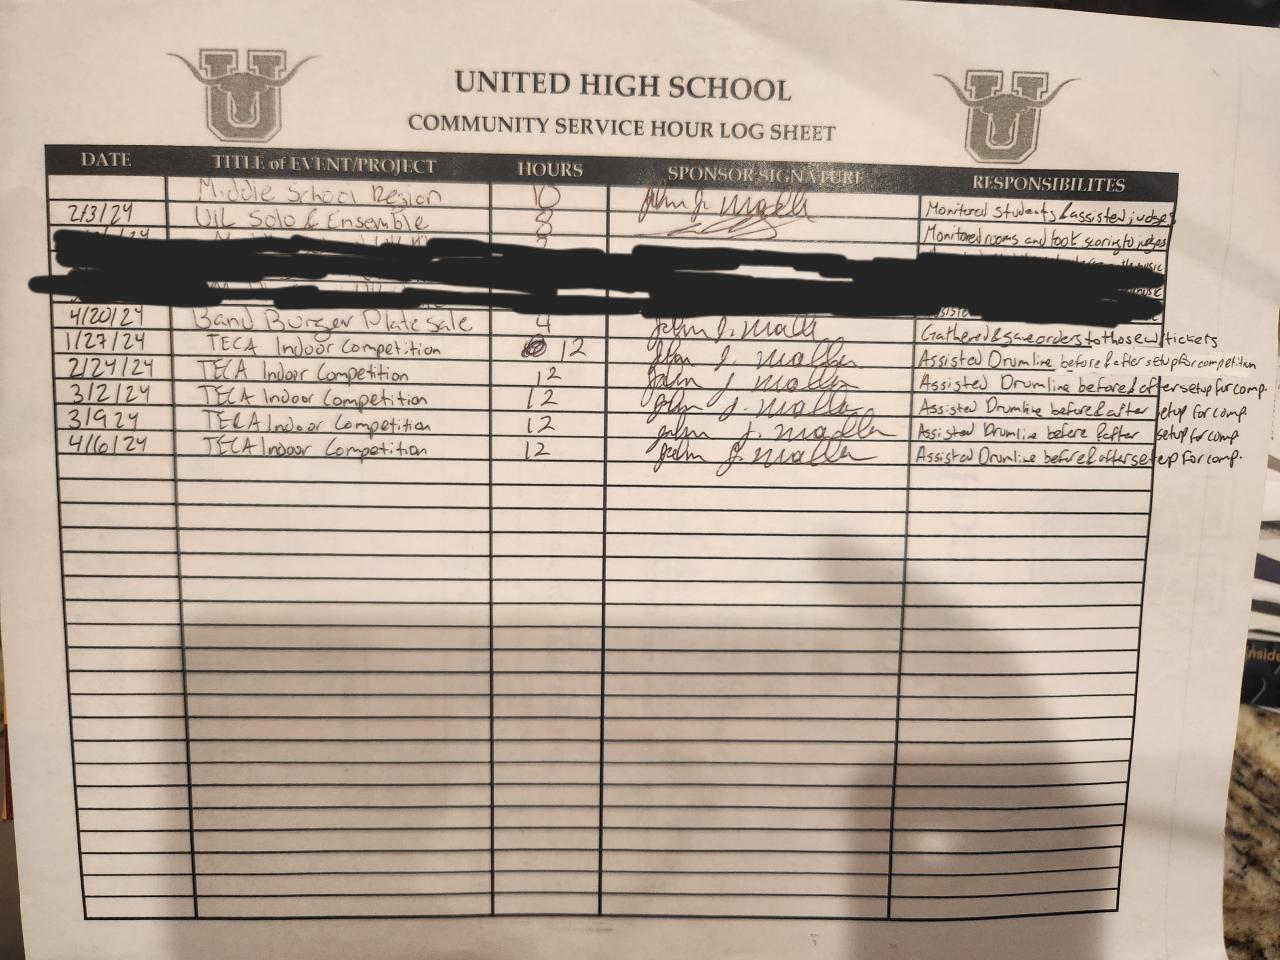 UNITED HIGH SCHOOL
COMMUNITY SERVICE HOUR LOG SHEET
DATE TITLE of EVENT/PROJECT HOURS SPONSOR SIGNATURE RESPONSIBILITES
Middle School Region 10 John J. Monitored students & assisted judges
2/3/24 UIL Solo & Ensemble 8 Monitored rooms and took scoring to judges
4/20/24 Band Burger Plate sale 4 John J. Gathered & gave orders to those w/ tickets
1/27/24 TECA Indoor Competition 12 John J. Assisted Drumline before & after setup for competition
2/24/24 TECA Indoor Competition 12 John J. Assisted Drumline before & after setup for comp.
3/2/24 TECA Indoor Competition 12 John J. Assisted Drumline before & after setup for comp
3/9 24 TECA Indoor Competition 12 John J. Assisted Drumline before & after setup for comp
4/6/24 TECA Indoor Competition 12 John J. Assisted Drumline before & after setup for comp.